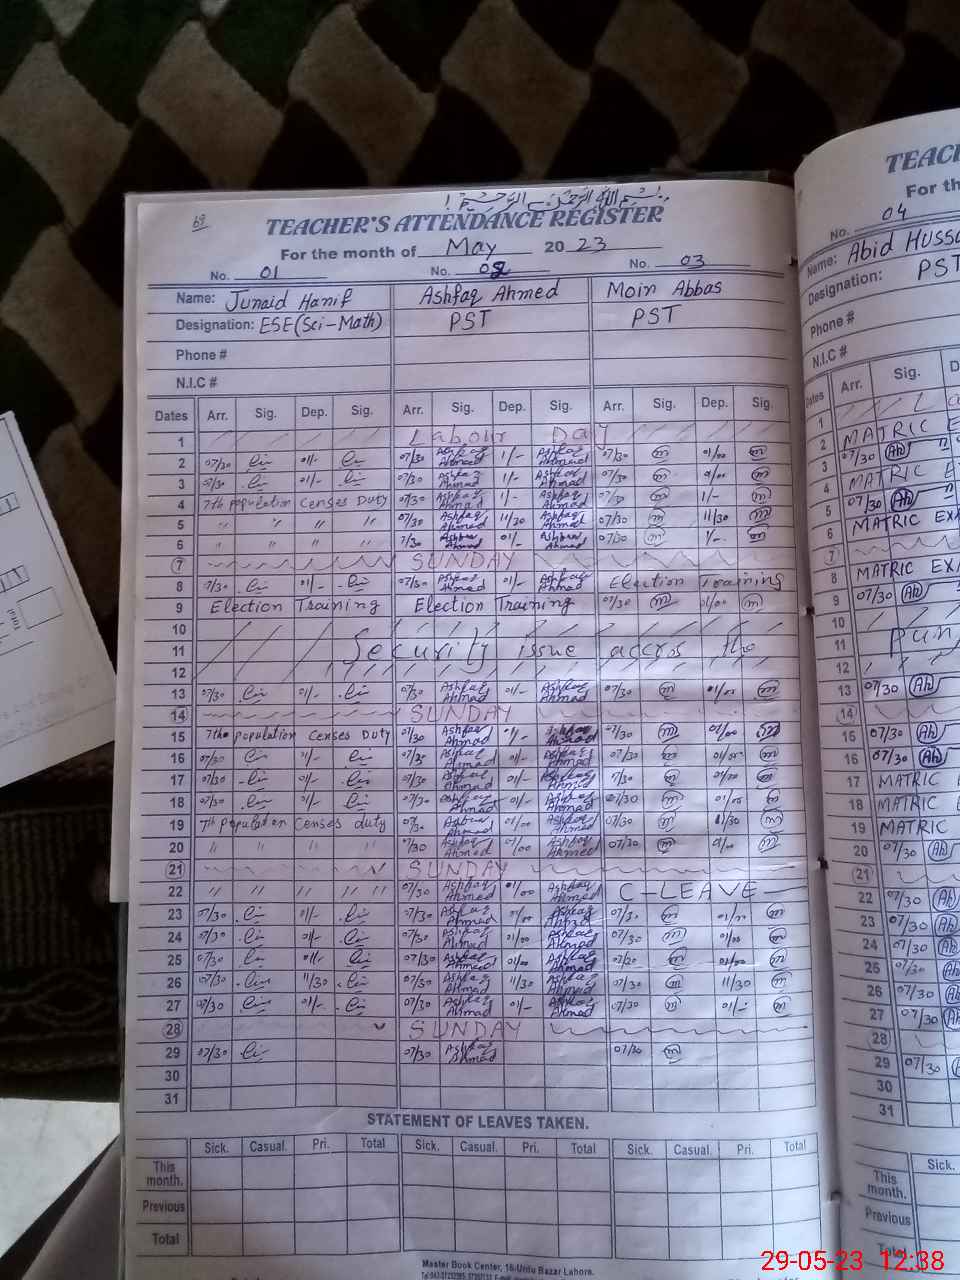 بسم اللہ الرحمن الرحیم
69
TEACHER'S ATTENDANCE REGISTER
For the month of May 2023
No. 01 No. 02 No. 03
Name: Junaid Hanif Ashfaq Ahmed Moin Abbas
Designation: ESE (Sci-Math) PST PST
Phone #
N.I.C #
Dates Arr. Sig. Dep. Sig. Arr. Sig. Dep. Sig. Arr. Sig. Dep. Sig.
1 Labour Day
2 07/30 01/- 07/30 Ashfaq Ahmad 1/- Ashfaq Ahmad 07/30 m 01/00 m
3 07/30 01/- 07/30 Ashfaq Ahmad 1/- Ashfaq Ahmad 07/30 m 01/00 m
4 7th population Censes Duty 07/30 Ashfaq Ahmad 1/- Ashfaq Ahmad 07/30 m 1/- m
5 " " " " 07/30 Ashfaq Ahmad 11/30 Ashfaq Ahmad 07/30 m 11/30 m
6 " " " " 7/30 Ashfaq Ahmad 01/- Ashfaq Ahmad 07/30 m 1/- m
7 SUNDAY
8 07/30 01/- 07/30 Ashfaq Ahmad 01/- Ashfaq Ahmad Election Training
9 Election Training Election Training 07/30 m 01/00 m
10
11 Security issue accros the
12
13 07/30 01/- 07/30 Ashfaq Ahmad 01/- Ashfaq Ahmad 07/30 m 01/00 m
14 SUNDAY
15 7the population Censes Duty 07/30 Ashfaq Ahmad Ahmad 07/30 m 01/00 m
16 07/30 01/- 07/30 Ashfaq Ahmad 01/- Ashfaq Ahmad 07/30 m 01/00 m
17 07/30 01/- 07/30 Ashfaq Ahmad 01/- Ashfaq Ahmad 7/30 m 01/00 m
18 07/30 01/- 07/30 Ashfaq Ahmad 01/- Ashfaq Ahmad 07/30 m 01/00 m
19 7th Population Censes duty 07/30 Ashfaq Ahmad 01/00 Ashfaq Ahmad 07/30 m 11/30 m
20 " " " " 7/30 Ashfaq Ahmad 01/00 Ashfaq Ahmed 07/30 m 01/00 m
21 SUNDAY
22 " " " " " 07/30 Ashfaq Ahmad 01/00 Ashfaq Ahmad C-LEAVE
23 07/30 01/- 07/30 Ashfaq Ahmad 01/00 Ashfaq Ahmad 07/30 m m
24 07/30 01/- 07/30 Ashfaq Ahmad 01/00 Ashfaq Ahmad 07/30 m 01/00 m
25 07/30 01/- 07/30 Ashfaq Ahmed 01/00 Ashfaq Ahmad 07/30 m 01/00 m
26 07/30 11/30 07/30 Ashfaq Ahmad 11/30 Ashfaq Ahmad 07/30 m 11/30 m
27 07/30 01/- 07/30 Ashfaq Ahmad 01/- Ashfaq Ahmad 07/30 m 01/- m
28 SUNDAY
29 07/30 07/30 Ashfaq Ahmad 07/30 m
30
31
STATEMENT OF LEAVES TAKEN.
Sick. Casual. Pri. Total Sick. Casual. Pri. Total Sick. Casual. Pri. Total
This month.
Previous
Total
Master Book Center, 16-Urdu Bazar Lahore.
TEAC
For th
No. 04
Name: Abid Hussa
Designation: PST
Phone #
N.I.C #
Dates Arr. Sig. D
1
2 MATRIC E
3 07/30 Ah
4 MATRIC E
5 07/30 Ah
6 MATRIC EX
7
8 MATRIC EXA
9 07/30 Ah
10
11 Pun
12
13 07/30 Ah
14
15 07/30 Ah
16 07/30 Ah
17 MATRIC E
18 MATRIC
19 MATRIC
20 07/30 Ah
21
22 07/30 Ah
23 07/30 Ah
24 07/30 Ah
25 07/30 Ah
26 07/30 Ah
27 07/30 Ah
28
29 07/30
30
31
Sick.
This month.
Previous
Total
29-05-23 12:38